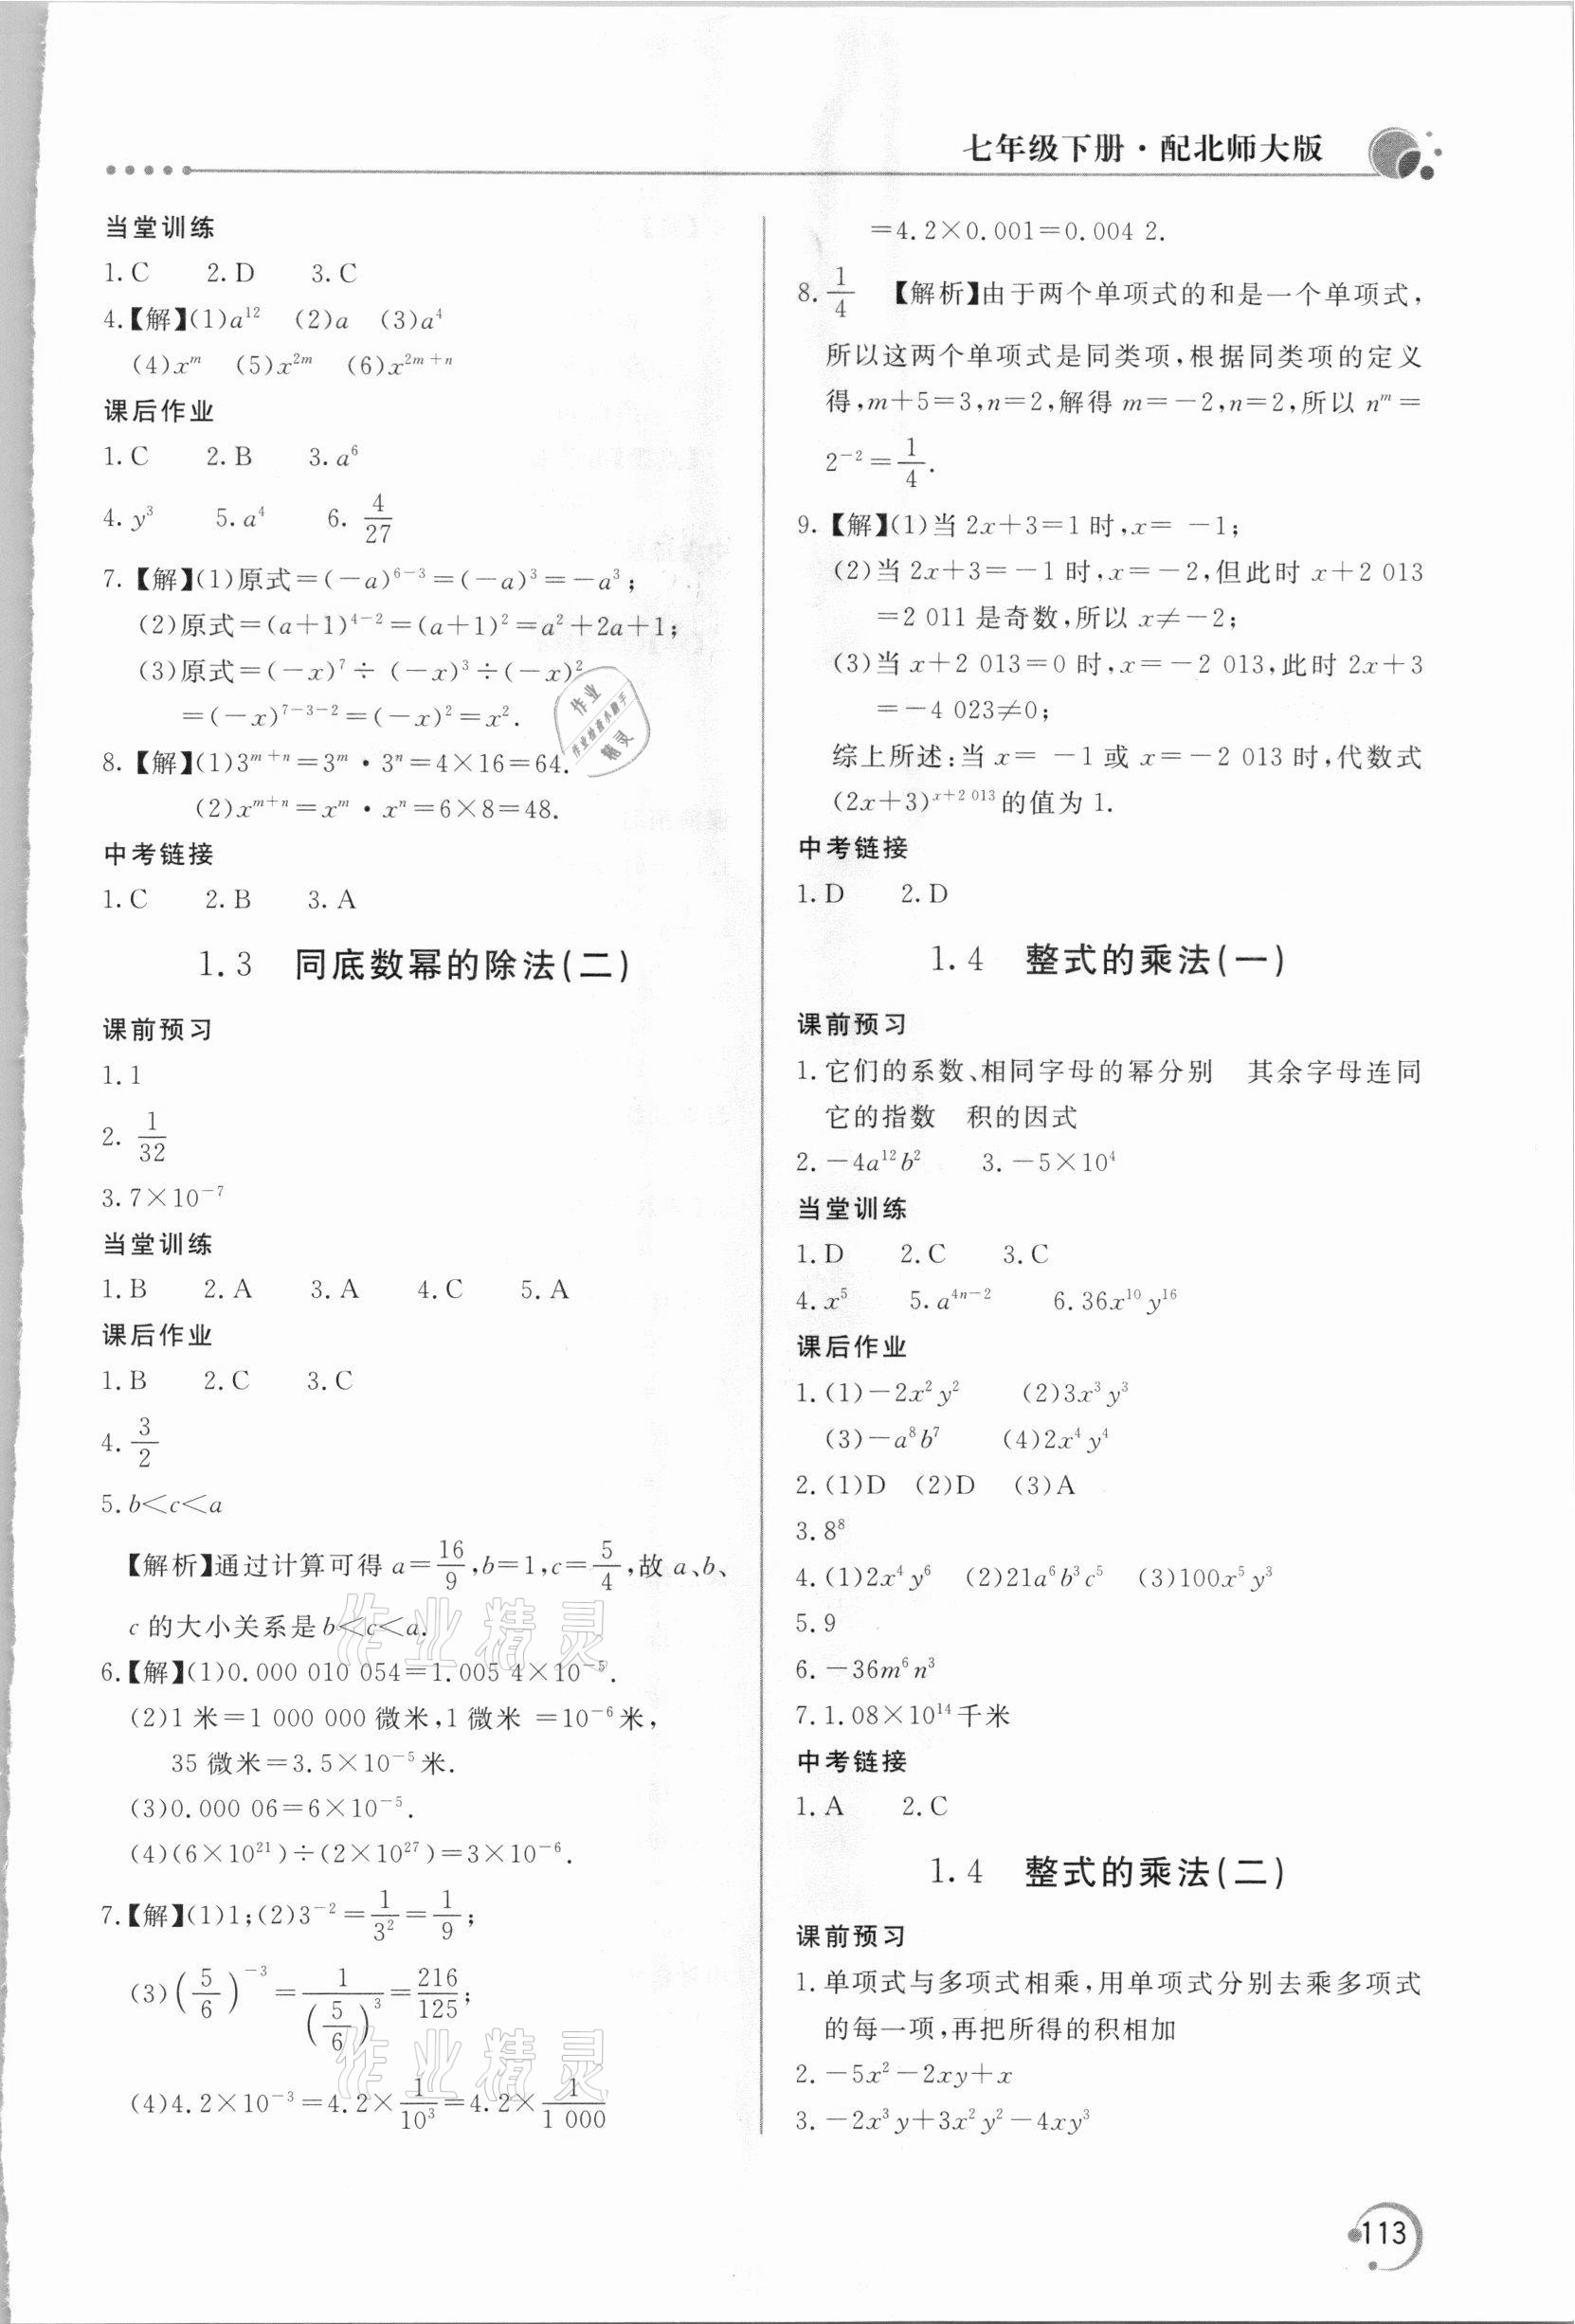 七年级下册·配北师大版
当堂训练
1.C 2.D 3.C
4.【解】(1)a¹² (2)a (3)a⁴
(4)xᵐ (5)x²ᵐ (6)x²ᵐ⁺ⁿ
课后作业
1.C 2.B 3.a⁶
4.y³ 5.a⁴ 6. 4/27
7.【解】(1)原式=(-a)⁶⁻³=(-a)³=-a³;
(2)原式=(a+1)⁴⁻²=(a+1)²=a²+2a+1;
(3)原式=(-x)⁷÷(-x)³÷(-x)²
=(-x)⁷⁻³⁻²=(-x)²=x².
8.【解】(1)3ᵐ⁺ⁿ=3ᵐ·3ⁿ=4×16=64.
(2)xᵐ⁺ⁿ=xᵐ·xⁿ=6×8=48.
中考链接
1.C 2.B 3.A
1.3 同底数幂的除法(二)
课前预习
1.1
2. 1/32
3.7×10⁻⁷
当堂训练
1.B 2.A 3.A 4.C 5.A
课后作业
1.B 2.C 3.C
4. 3/2
5.b<c<a
【解析】通过计算可得 a=16/9,b=1,c=5/4,故 a、b、
c 的大小关系是 b<c<a.
6.【解】(1)0.000 010 054=1.005 4×10⁻⁵.
(2)1 米=1 000 000 微米,1 微米 =10⁻⁶米,
35 微米=3.5×10⁻⁵米.
(3)0.000 06=6×10⁻⁵.
(4)(6×10²¹)÷(2×10²⁷)=3×10⁻⁶.
7.【解】(1)1;(2)3⁻²=1/3²=1/9;
(3)(5/6)⁻³=1/(5/6)³=216/125;
(4)4.2×10⁻³=4.2×1/10³=4.2×1/1 000
=4.2×0.001=0.004 2.
8. 1/4 【解析】由于两个单项式的和是一个单项式,
所以这两个单项式是同类项,根据同类项的定义
得,m+5=3,n=2,解得 m=-2,n=2,所以 nᵐ=
2⁻²=1/4.
9.【解】(1)当 2x+3=1 时,x= -1;
(2)当 2x+3=-1 时,x=-2,但此时 x+2 013
=2 011 是奇数,所以 x≠-2;
(3)当 x+2 013=0 时,x=-2 013,此时 2x+3
=-4 023≠0;
综上所述:当 x= -1 或 x=-2 013 时,代数式
(2x+3)ˣ⁺² ⁰¹³的值为 1.
中考链接
1.D 2.D
1.4 整式的乘法(一)
课前预习
1.它们的系数、相同字母的幂分别 其余字母连同
它的指数 积的因式
2.-4a¹²b² 3.-5×10⁴
当堂训练
1.D 2.C 3.C
4.x⁵ 5.a⁴ⁿ⁻² 6.36x¹⁰y¹⁶
课后作业
1.(1)-2x²y² (2)3x³y³
(3)-a⁸b⁷ (4)2x⁴y⁴
2.(1)D (2)D (3)A
3.8⁸
4.(1)2x⁴y⁶ (2)21a⁶b³c⁵ (3)100x⁵y³
5.9
6.-36m⁶n³
7.1.08×10¹⁴千米
中考链接
1.A 2.C
1.4 整式的乘法(二)
课前预习
1.单项式与多项式相乘,用单项式分别去乘多项式
的每一项,再把所得的积相加
2.-5x²-2xy+x
3.-2x³y+3x²y²-4xy³
113
作业
作业检查小助手
精灵
作业精灵
作业精灵